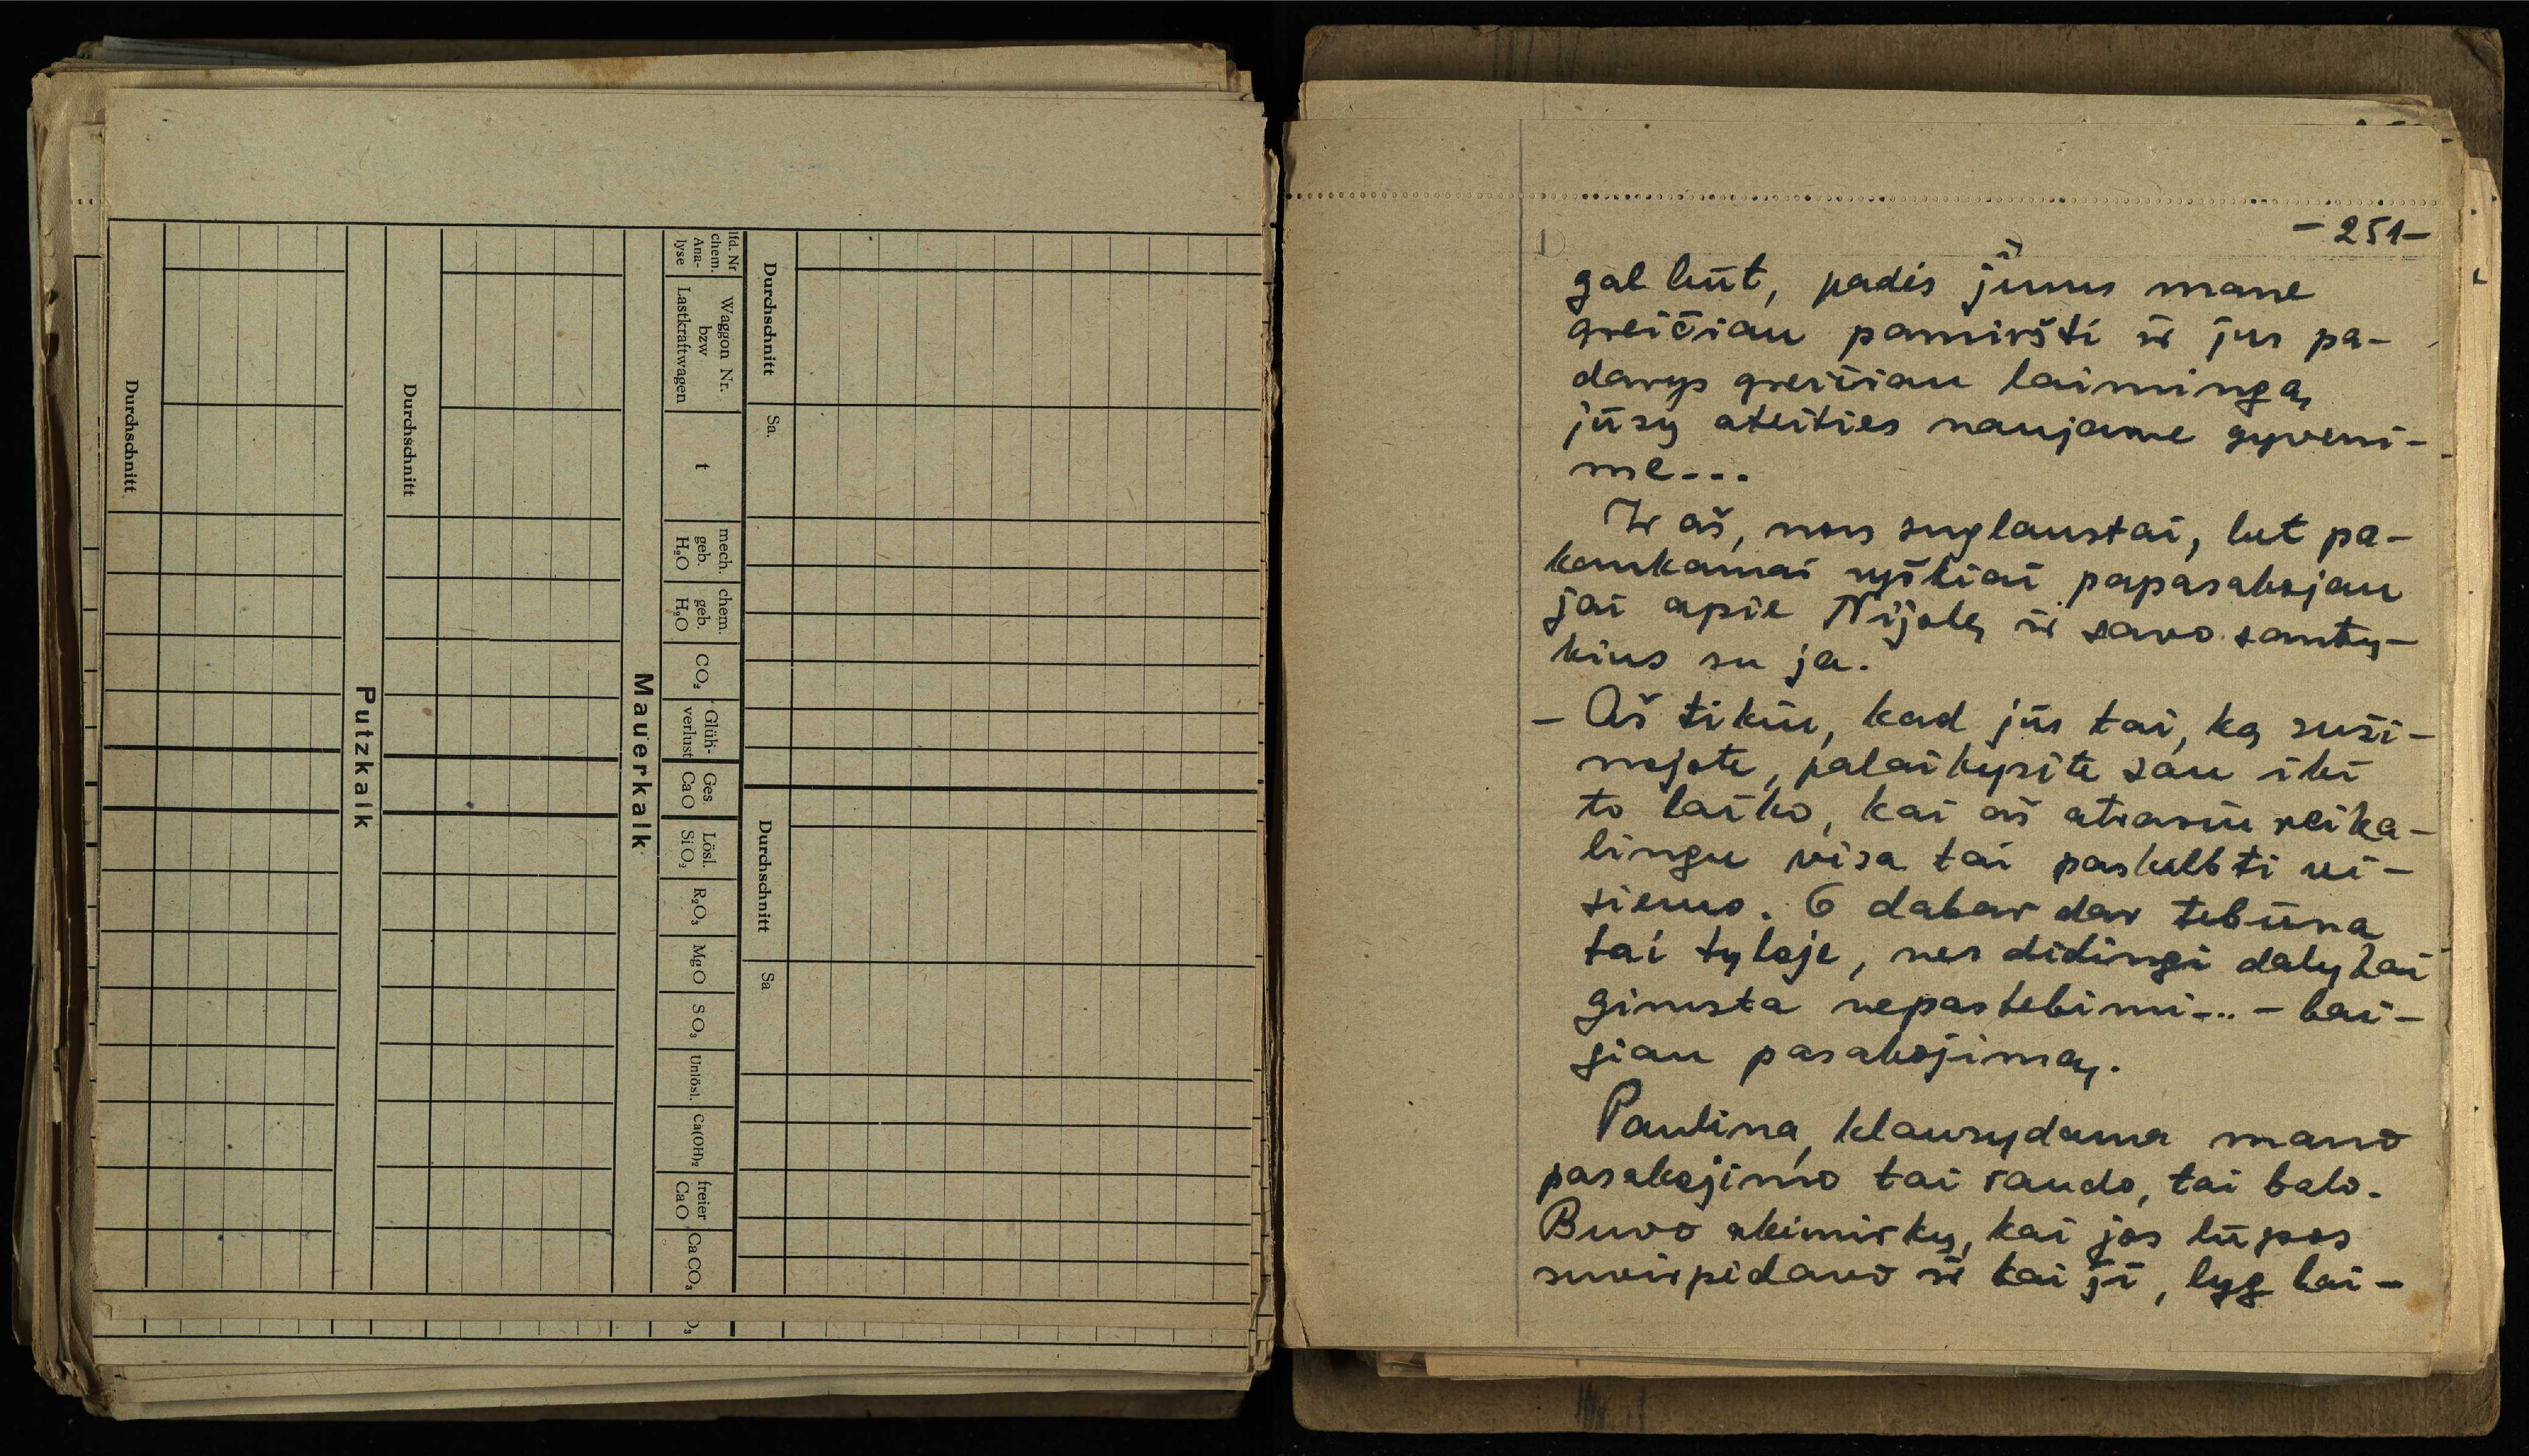 Durchschnitt
Putzkalk
Durchschnitt
Mauerkalk
lfd. Nr
chem.
Ana-
lyse
Waggon Nr.
bzw
Lastkraftwagen
t
mech.
geb.
H₂O
chem.
geb.
H₂O
CO₂
Glüh-
verlust
Ges.
CaO
Lösl.
SiO₂
R₂O₃
MgO
SO₃
Unlösl.
Ca(OH)₂
freier
CaO
CaCO₃
Durchschnitt
Sa.
Durchschnitt
Sa
- 251 -
gal būt, padės jums mane
greičiau pamiršti ir jus pa-
darys greičiau laiminga,
jūsų ateities naujame gyveni-
me...
Ir aš, nors suglaustai, bet pa-
kankamai ryškiai papasakojau
jai apie Nijolę ir savo santy-
kius su ja.
- Aš tikiu, kad jūs tai, ką suži-
nojote, palaikysite sau iki
to laiko, kai aš atrasiu reika-
lingu visa tai paskelbti vi-
siems. O dabar dar tebūna
tai tyloje, nes didingi dalykai
gimsta nepastebimi... - bai-
giau pasakojimą.
Paulina, klausydama mano
pasakojimo tai raudo, tai balo.
Buvo akimirkų, kai jos lūpos
suvirpėdavo ir kai ji, lyg bai-